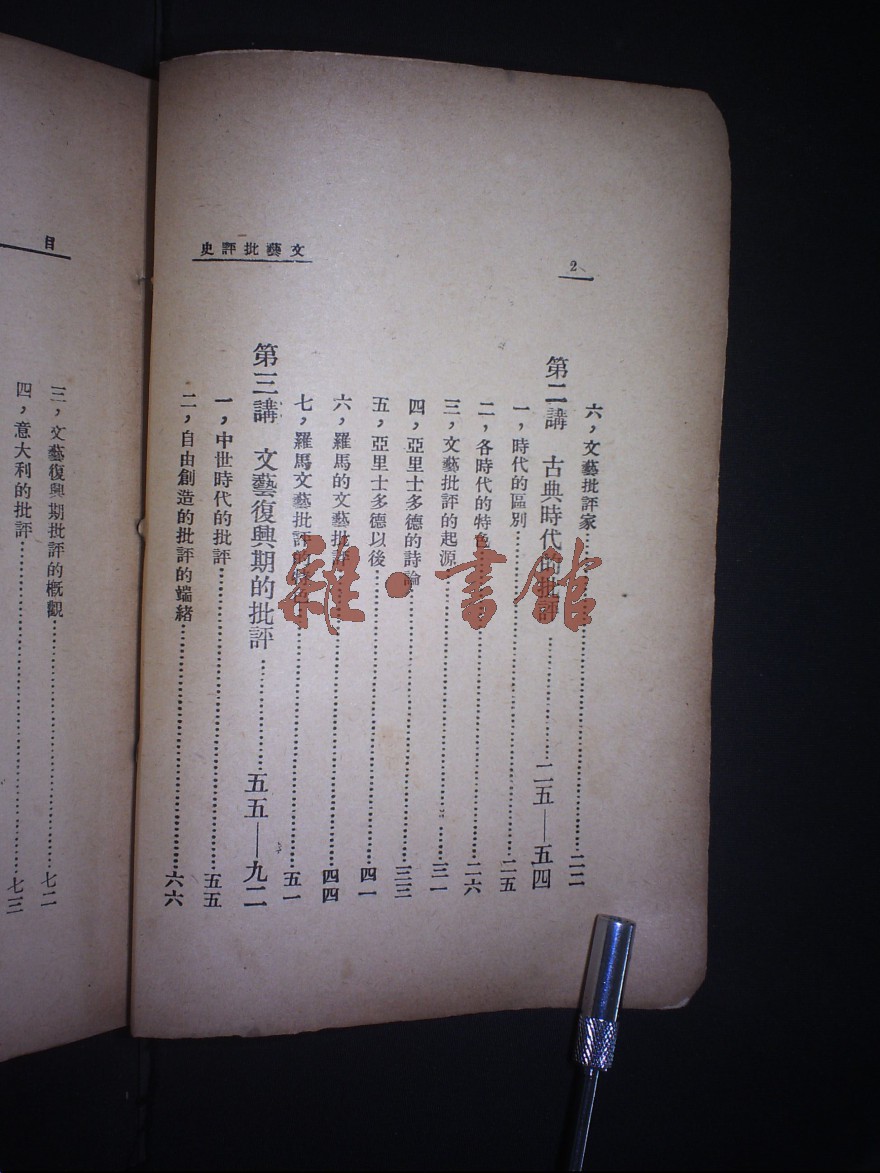 2
文藝批評史
六，文藝批評家……二二
第二講　古典時代的批評……二五—五四
一，時代的區別……二五
二，各時代的特色……二六
三，文藝批評的起源……三一
四，亞里士多德的詩論……三三
五，亞里士多德以後……四一
六，羅馬的文藝批評……四四
七，羅馬文藝批評的……五一
第三講　文藝復興期的批評……五五—九二
一，中世時代的批評……五五
二，自由創造的批評的端緒……六六
目
三，文藝復興期批評的概觀……七二
四，意大利的批評……七三
雜·書館